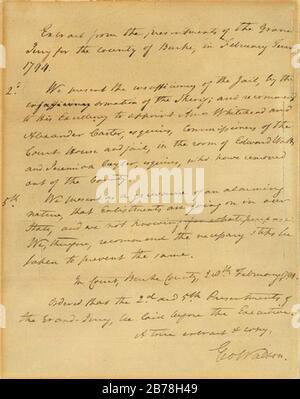 Extract from the presentments of the Grand
Jury for the county of Burke, in February Term
1794.
2d. We present the insufficiency of the Jail, by the
information of the Sheriff; and recommend
to his Excellency to appoint Amos Whitehead and
Alexander Carter, esquires, Commissioners of the
Court House and jail, in the room of Edward
and esquires, who have removed
out of the County.
5th. We present as a grievance of an alarming
nature, that Enlistments are going on in our
State, and we not knowing for what purpose
We, therefore, recommend the necessary steps be
taken to prevent the same.
In Court, Burke County, February 1794.
Ordered that the 2d and 5th Presentments of
the Grand Jury, be laid before the Executive.
A true extract & copy,
Geo Watson.
alamy
Image ID: 2B78H49
www.alamy.com